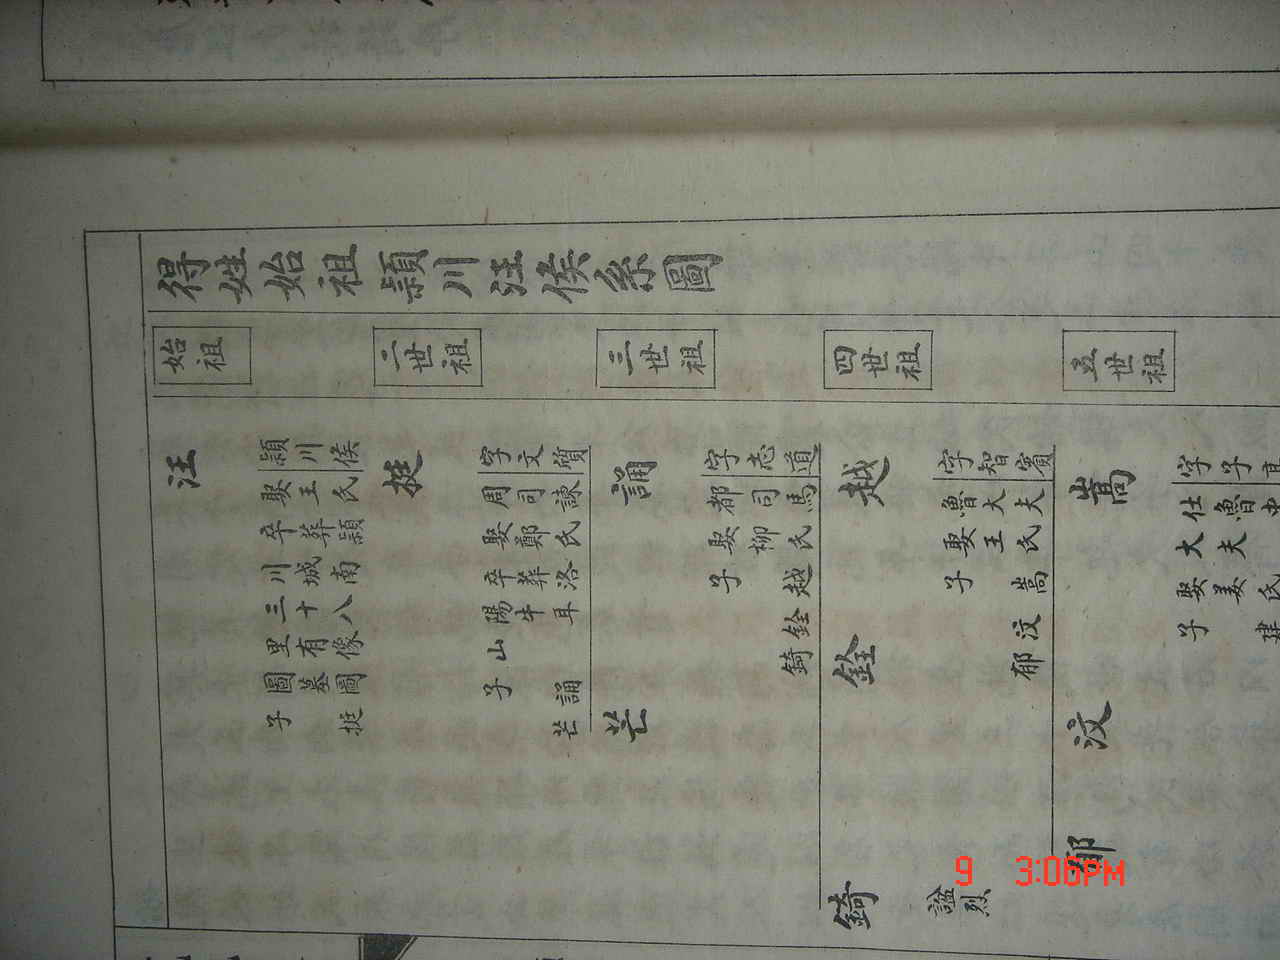 得姓始祖潁川汪侯系圖
始祖
二世祖
三世祖
四世祖
五世祖
汪
潁川侯
娶王氏
卒葬潁
川城南
三十八
里有像
圖墓圖
子挺
挺
字文質
周司諫
娶鄭氏
卒葬洛
陽牛耳
山
子誦
芒
誦
字志道
都司馬
娶柳氏
子越
銓
錡
芒
越
字智賓
魯大夫
娶王氏
子嵩
汶
郁
銓
錡
謚烈
嵩
字子
仕魯
大夫
娶姜氏
子建
汶
郁
9 3:06PM